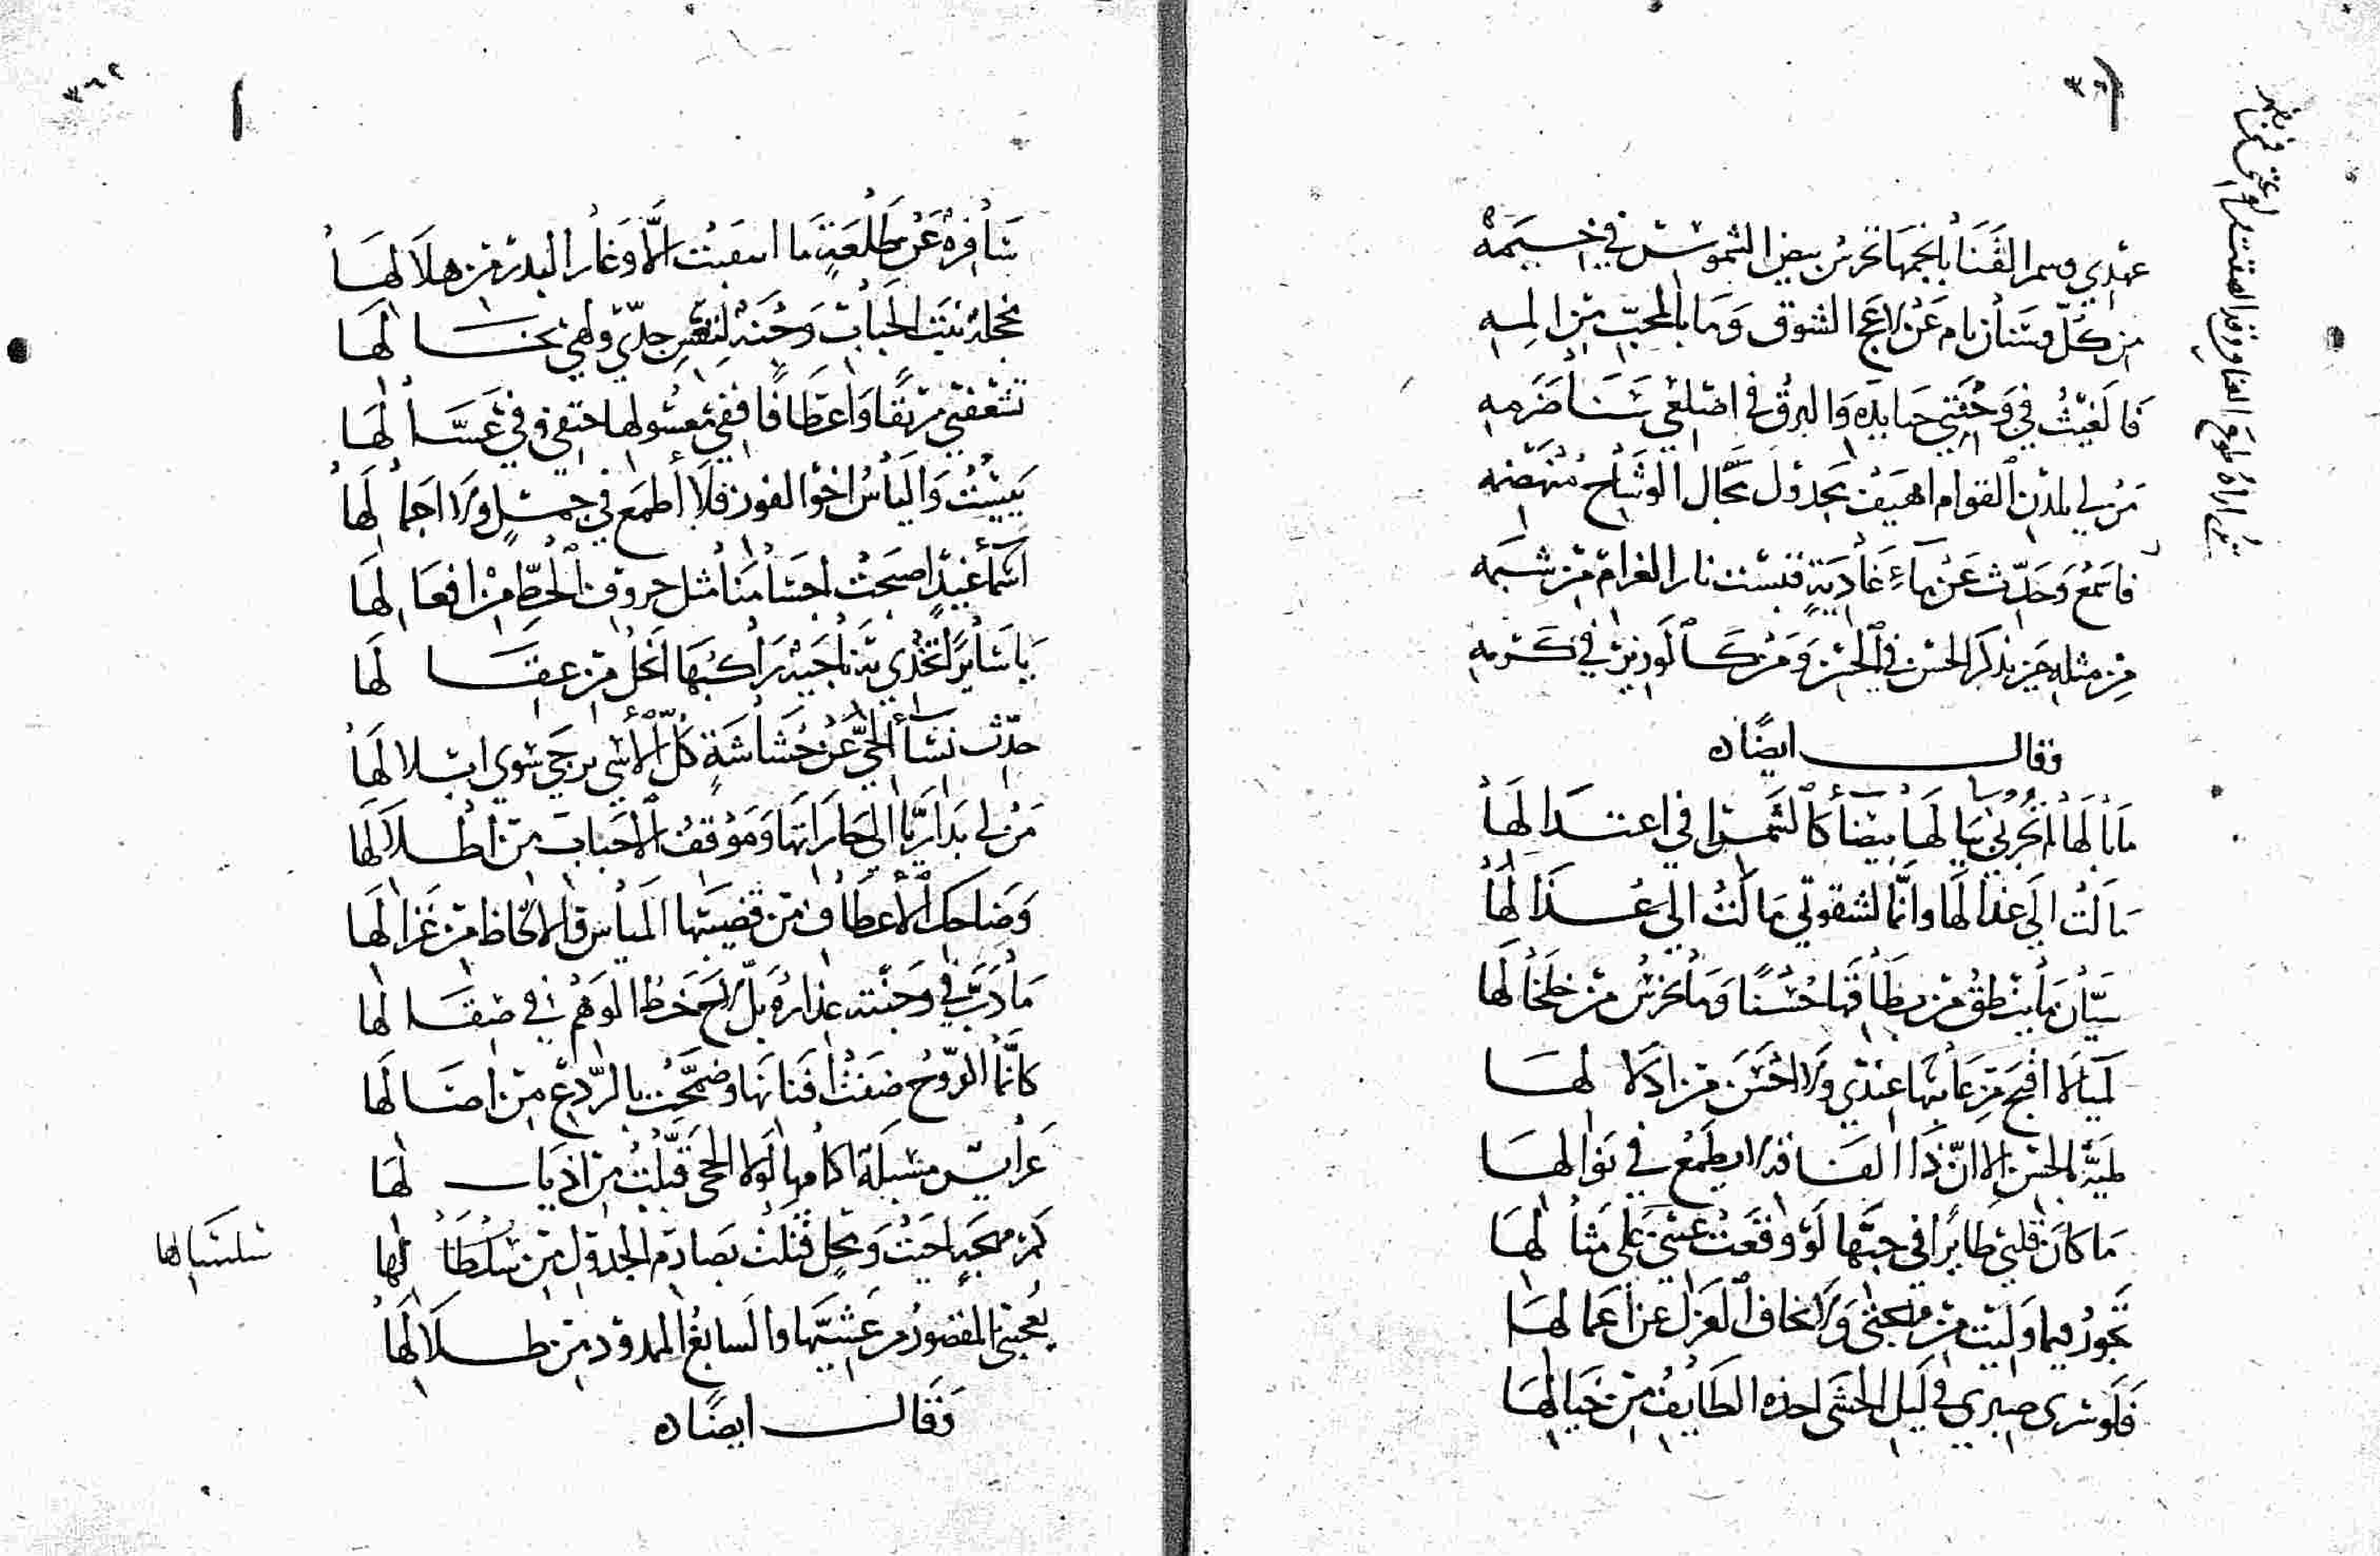 عهدي وسمر القنا بأنجمها تحرس بيض الشموس في خيمه
من كل وسنان نام عن لاعج الشوق وما بالمحب من المه
فالغيث في وجنتي حيا يده والبرق في اضلعي سنا ضرمه
من لي بلدن القوام اهيف يجدول مجال الوشاح منهضمه
فاسمع وحدث عن ماء غادية قبست نار الغرام من شبمه
من مثله حين يذكر الحسن في الحسن ومن كالوزير في كرمه
وقال ايضًا
ما بالها لم تجر لي ببالها بيضاء كالشمس في اعتدالها
مالت الي عذالها وانما لشقوتي مالت الي عذالها
سيان ما ينطق من نطاقها حسنًا وما يخرس من خلخالها
لمياء لا اقبح من عابها عندي ولا احسن من ادلالها
لمية بالحسن الا ان ذا الفاقة لا يطمع في نوالها
ما كان قلبي طايرًا في حبها لو وقعت عيني على مثالها
تجور فيما وليت من مهجتي ولا تخاف العزل عن اعمالها
فلو سرى صبري في ليل الحشى اخذه الطايف من خيالها
سافرة عن طلعة ما اسفرت الا وغار البدر من هلالها
تشغفني ريقًا واعطافًا ففي معسولها حتفي وفي عسالها
يئست والياس اخو الفوز فلا أطمع في جمل ولا اجمالها
اسماء غيد اصبحت اجسامنا مثل حروف الخط من افعالها
يا سايرًا تخدي به ناجية راكبها انحل من عقالها
حدث نساء الحي عن حشاشة كل الاسى يرجى سوى ابلالها
من لي بدار ريا الي جاراتها وموقف الاحباب من اطلالها
وضاحك الاعطاف من قضيبها المياس والالحاظ من غزالها
ما دب في وجنته عذاره بل لاح خط الوهم في صقالها
كانما الروح ضفت افنانها وضمخت بالردع من اصالها
عرايس مسبلة اكمامها لولا الحجى قبلت من اذيالها
كم مهجة احيت ومحل قتلت بصارم الجدول من سلسالها
سلسالها
يعجبني المقصور من عشيها والسابغ الممدود من ظلالها
وقال ايضًا